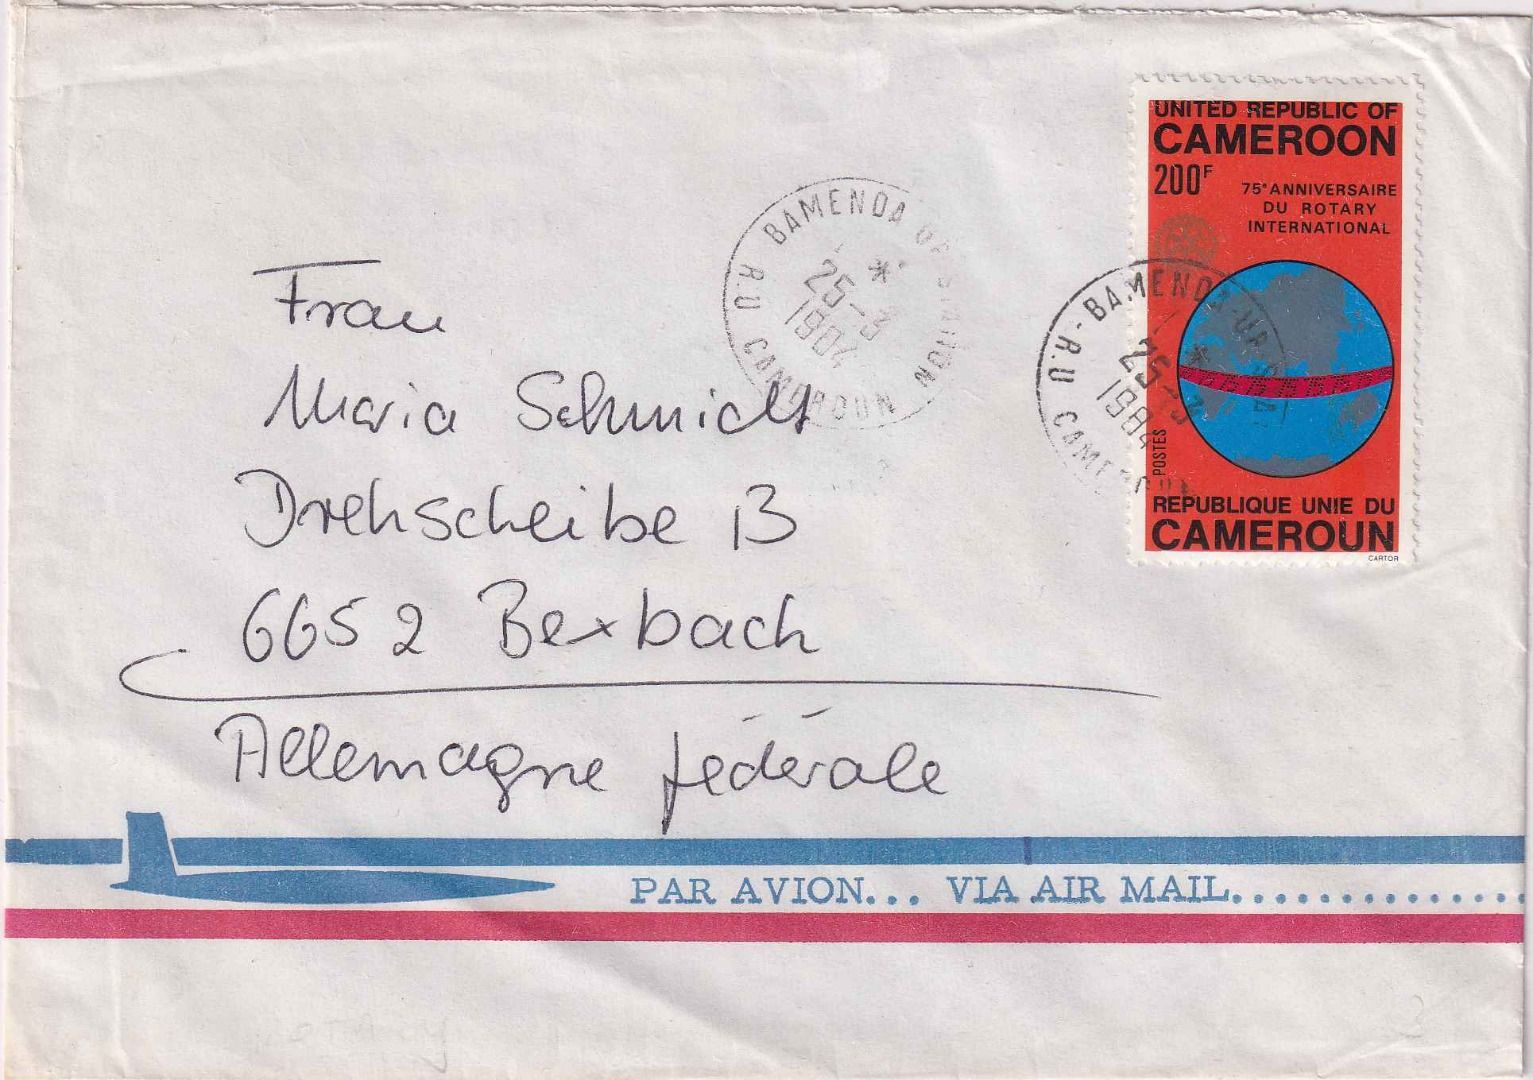 UNITED REPUBLIC OF
CAMEROON
200F
75e ANNIVERSAIRE
DU ROTARY
INTERNATIONAL
POSTES
REPUBLIQUE UNIE DU
CAMEROUN
CARTOR
BAMENDA UP STATION
25-3
1984
R.U CAMEROUN
BAMENDA-UP
25-3
1984
R.U CAMEROUN
Frau
Maria Schmidt
Drehscheibe 13
6652 Bexbach
Allemagne fédérale
PAR AVION... VIA AIR MAIL..............